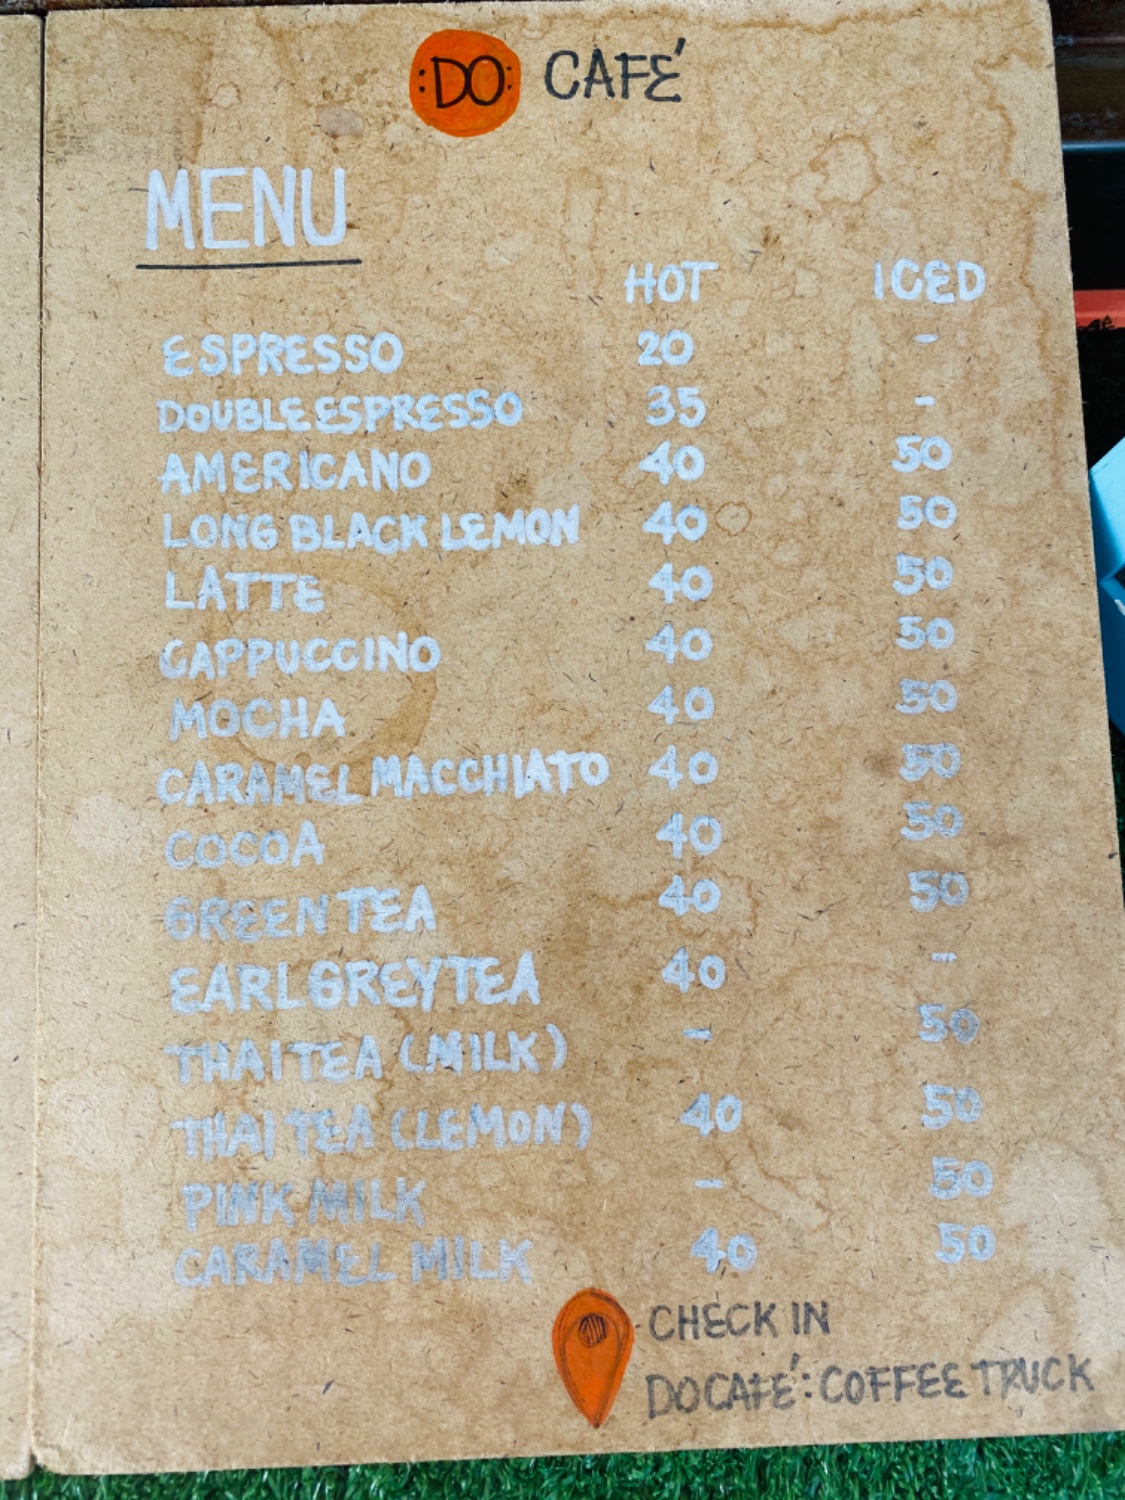 :DO: CAFÉ
MENU
HOT ICED
ESPRESSO 20 -
DOUBLE ESPRESSO 35 -
AMERICANO 40 50
LONG BLACK LEMON 40 50
LATTE 40 50
CAPPUCCINO 40 50
MOCHA 40 50
CARAMEL MACCHIATO 40 50
COCOA 40 50
GREEN TEA 40 50
EARL GREY TEA 40 -
THAI TEA (MILK) - 50
THAI TEA (LEMON) 40 50
PINK MILK - 50
CARAMEL MILK 40 50
CHECK IN
DO CAFÉ: COFFEE TRUCK